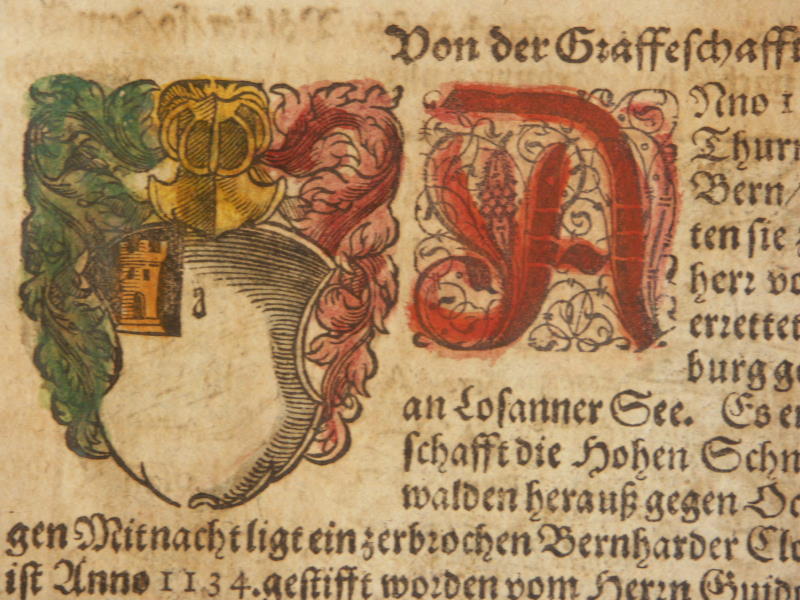 Von der Graffeschafft
a
Anno 1
Thurn
Bern/
ten sie
herr vo
errettet
burg ge
an Losanner See. Es er
schafft die Hohen Schn
walden herauß gegen Oc
gen Mitnacht ligt ein zerbrochen Bernharder Clo
ist Anno 1134. gestifft worden vom Herrn Guido